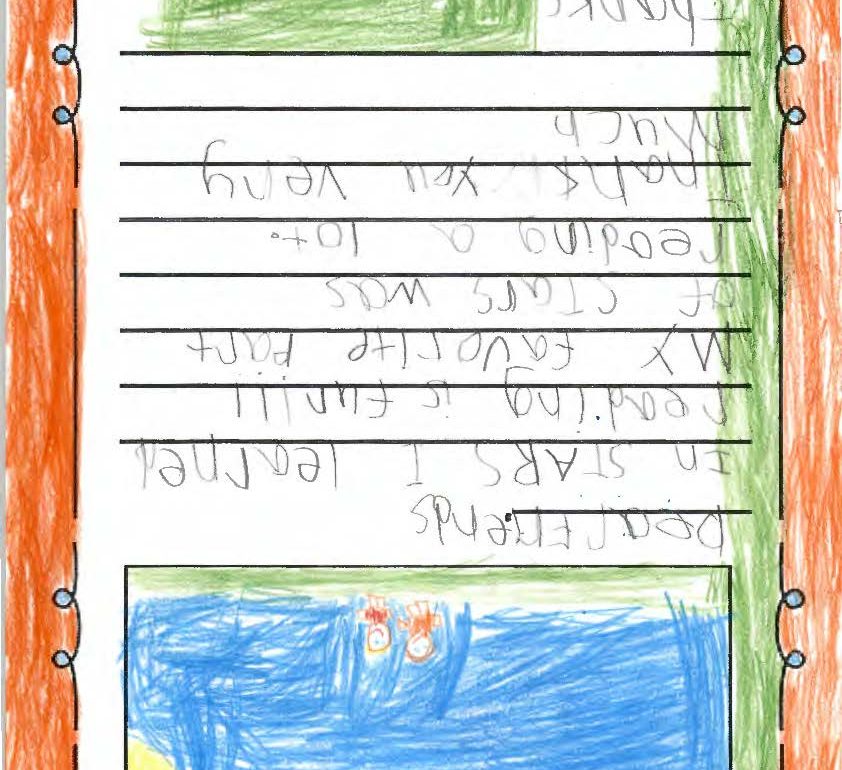 Dear Friends
In STARS I learned
reading is fun!!!!
My favorite part
of STarS was
reading a lot.
Thank you very
Much
Thanks